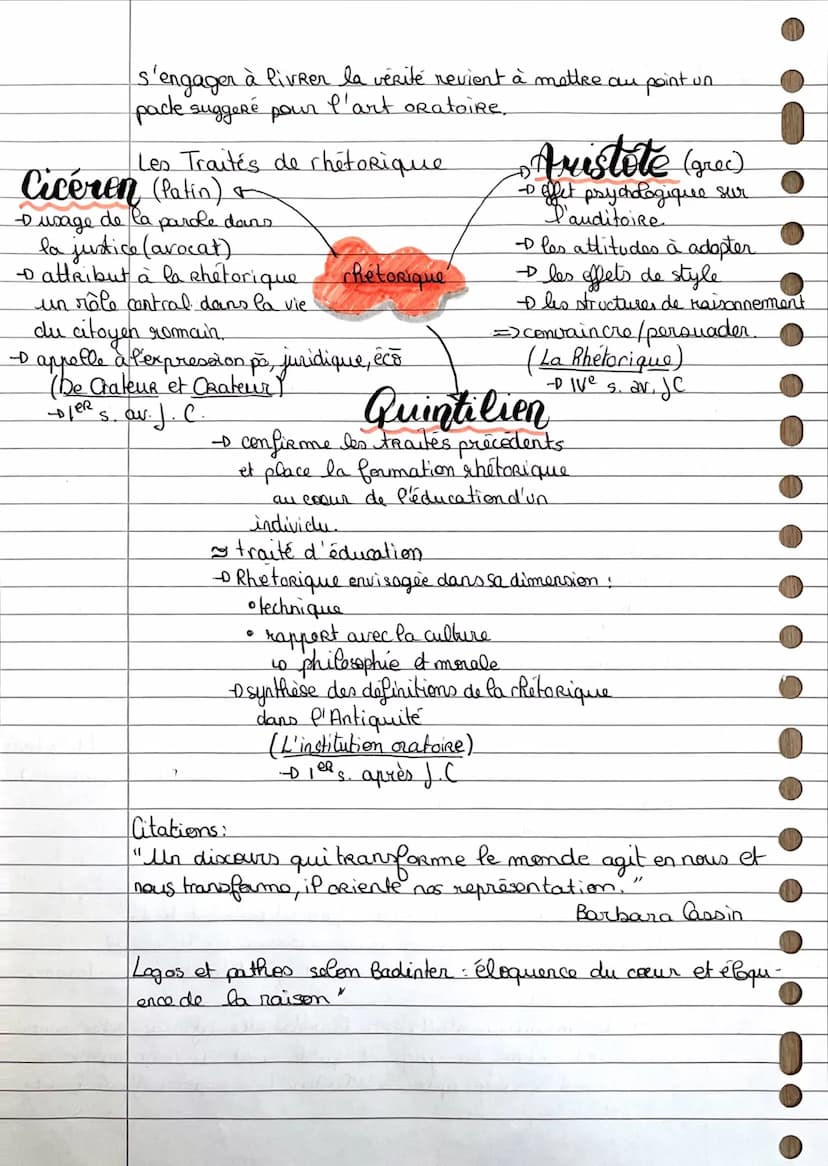 s'engager à livrer la vérité revient à mettre au point un
pacte suggeré pour l'art oratoire.
Les Traités de rhétorique
Cicéron (latin)
→ usage de la parole dans
la justice (avocat)
→ attribut à la rhétorique
un rôle central dans la vie
du citoyen romain.
→ appelle à l'expression pô, juridique, écô
(De Orateur et Orateur)
→ 1er s. av. J. C.
rhétorique
Aristote (grec)
→ effet psychologique sur
l'auditoire.
→ les attitudes à adopter
→ les effets de style
→ les structures de raisonnement
=> convaincre/persuader.
(La Rhétorique)
→ IVe s. av. JC
Quintilien
→ confirme les traités précédents
et place la formation rhétorique
au coeur de l'éducation d'un
individu.
≈ traité d'éducation
→ Rhétorique envisagée dans sa dimension :
• technique
• rapport avec la culture
↳ philosophie et morale
→ synthèse des définitions de la rhétorique
dans l'Antiquité
(L'institution oratoire)
→ 1er s. après J.C
Citations :
"Un discours qui transforme le monde agit en nous et
nous transforme, il oriente nos représentation."
Barbara Cassin
Logos et pathos selon Badinter : éloquence du cœur et éloqu-
ence de la raison"